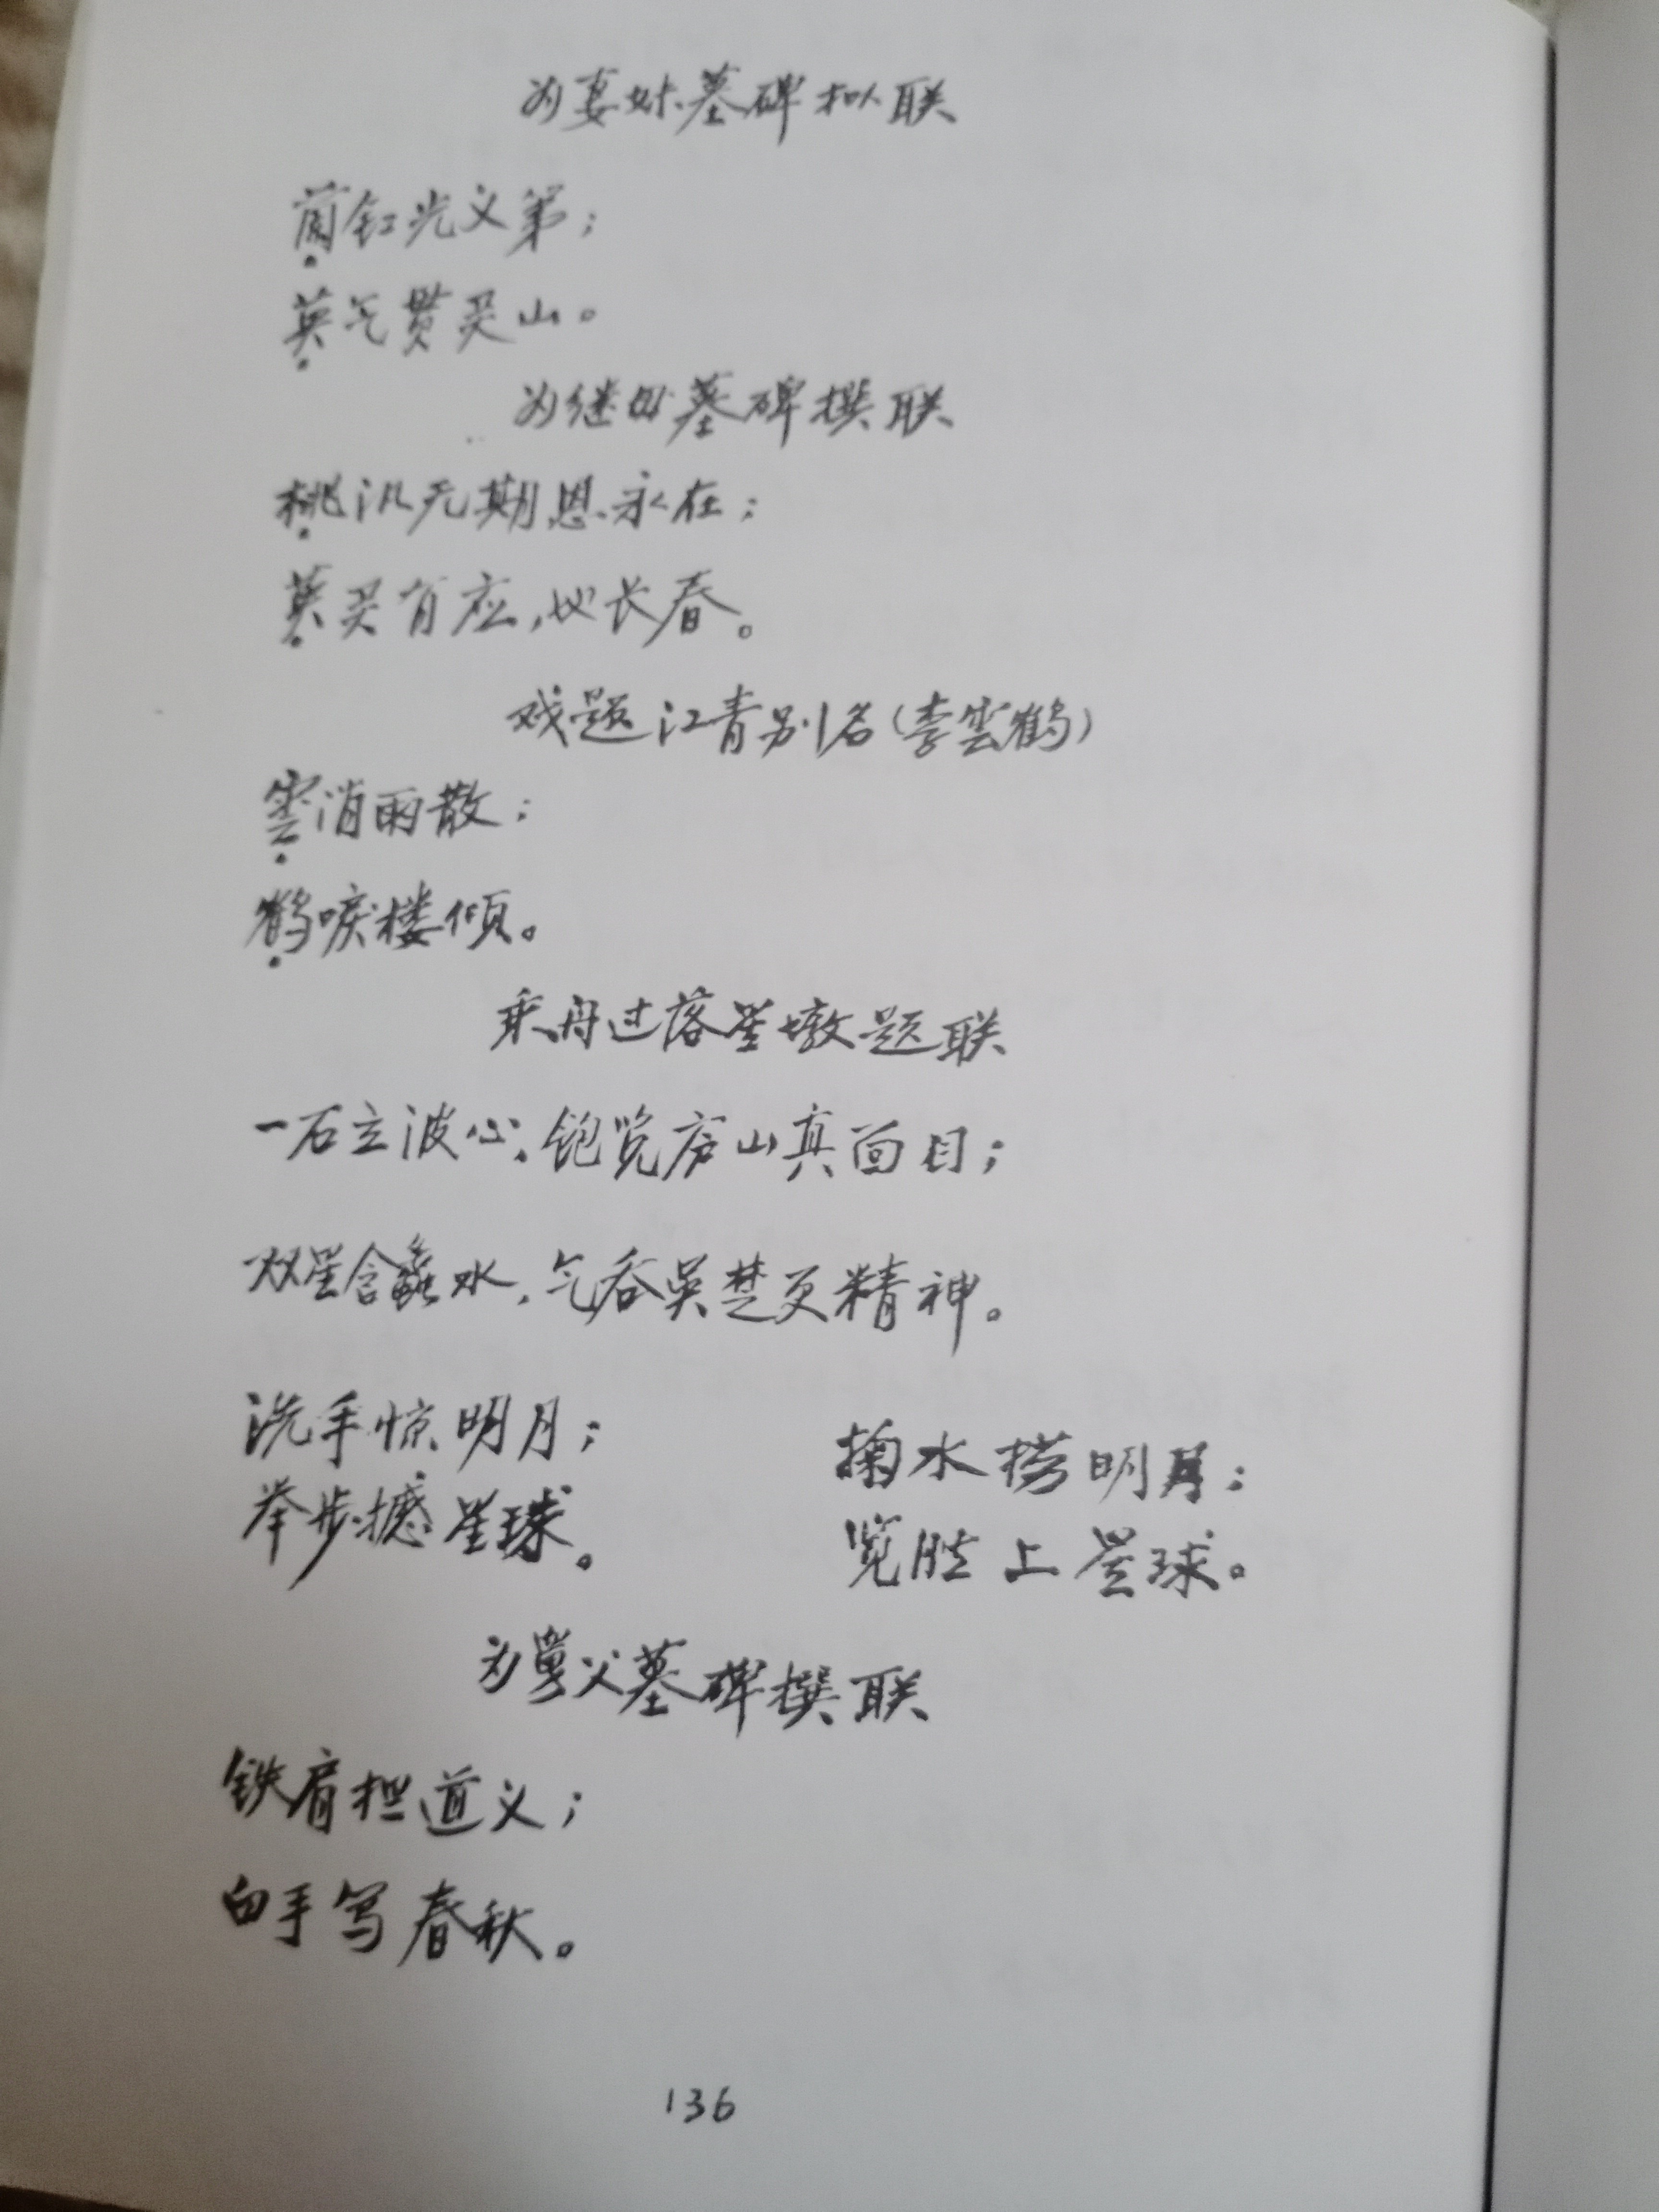 为妻妹墓碑拟联
兰釭光义第；
英气贯灵山。
为继母墓碑撰联
桃汛无期恩永在；
英灵有应，地长春。
戏题江青别名（李雲鹤）
雲消雨散；
鹤唳楼倾。
乘舟过落星墩题联
一石立波心，饱览庐山真面目；
双星含蠡水，气吞吴楚更精神。
洗手惊明月；
举步撼星球。
掬水捞明月；
览胜上星球。
为舅父墓碑撰联
铁肩担道义；
白手写春秋。
136